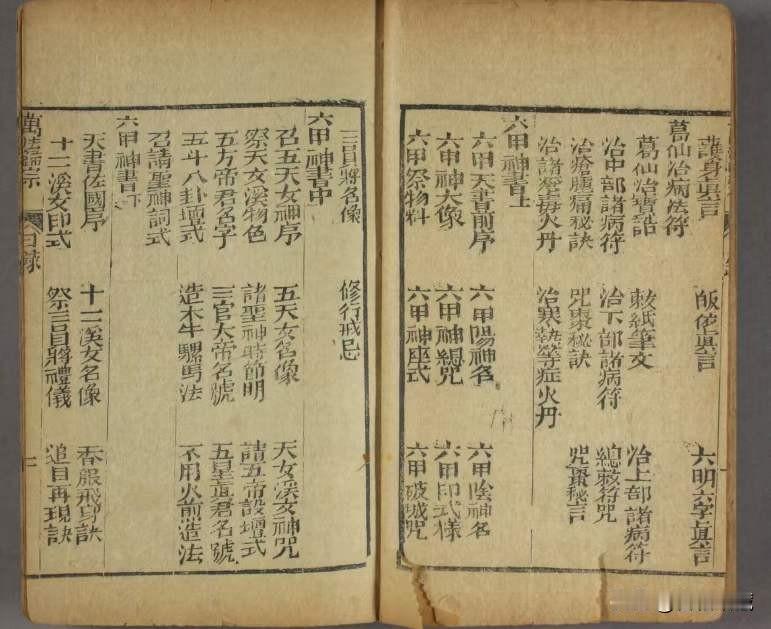 護身真言　皈依真言　六明六字真言
葛仙治病法符
葛仙治寶誥　敕紙筆文　治上部諸病符
治中部諸病符　治下部諸病符　總敕符咒
治瘡腫痛秘訣　咒棗秘訣　咒棗秘言
治諸毒火丹　治寒熱等症火丹
六甲神書上
六甲天書前序　六甲陽神名　六甲陰神名
六甲神大像　六甲神總咒　六甲印式樣
六甲祭物料　六甲神座式　六甲破城咒
三員將名像　修行戒忌
六甲神書中
召五天女神序　五天女名像　天女溪女神咒
祭天女溪物色　諸聖神時節明　請五帝設壇式
五方帝君名字　三官大帝名號　五星真君名號
五斗八卦壇式　造木牛騾馬法　不用火煎造法
召請聖神詞式
六甲神書下
天書佐國序　十二溪女名像　吞服飛身訣
十二溪女印式　祭三員將禮儀　追目再現訣
萬法歸宗　目錄